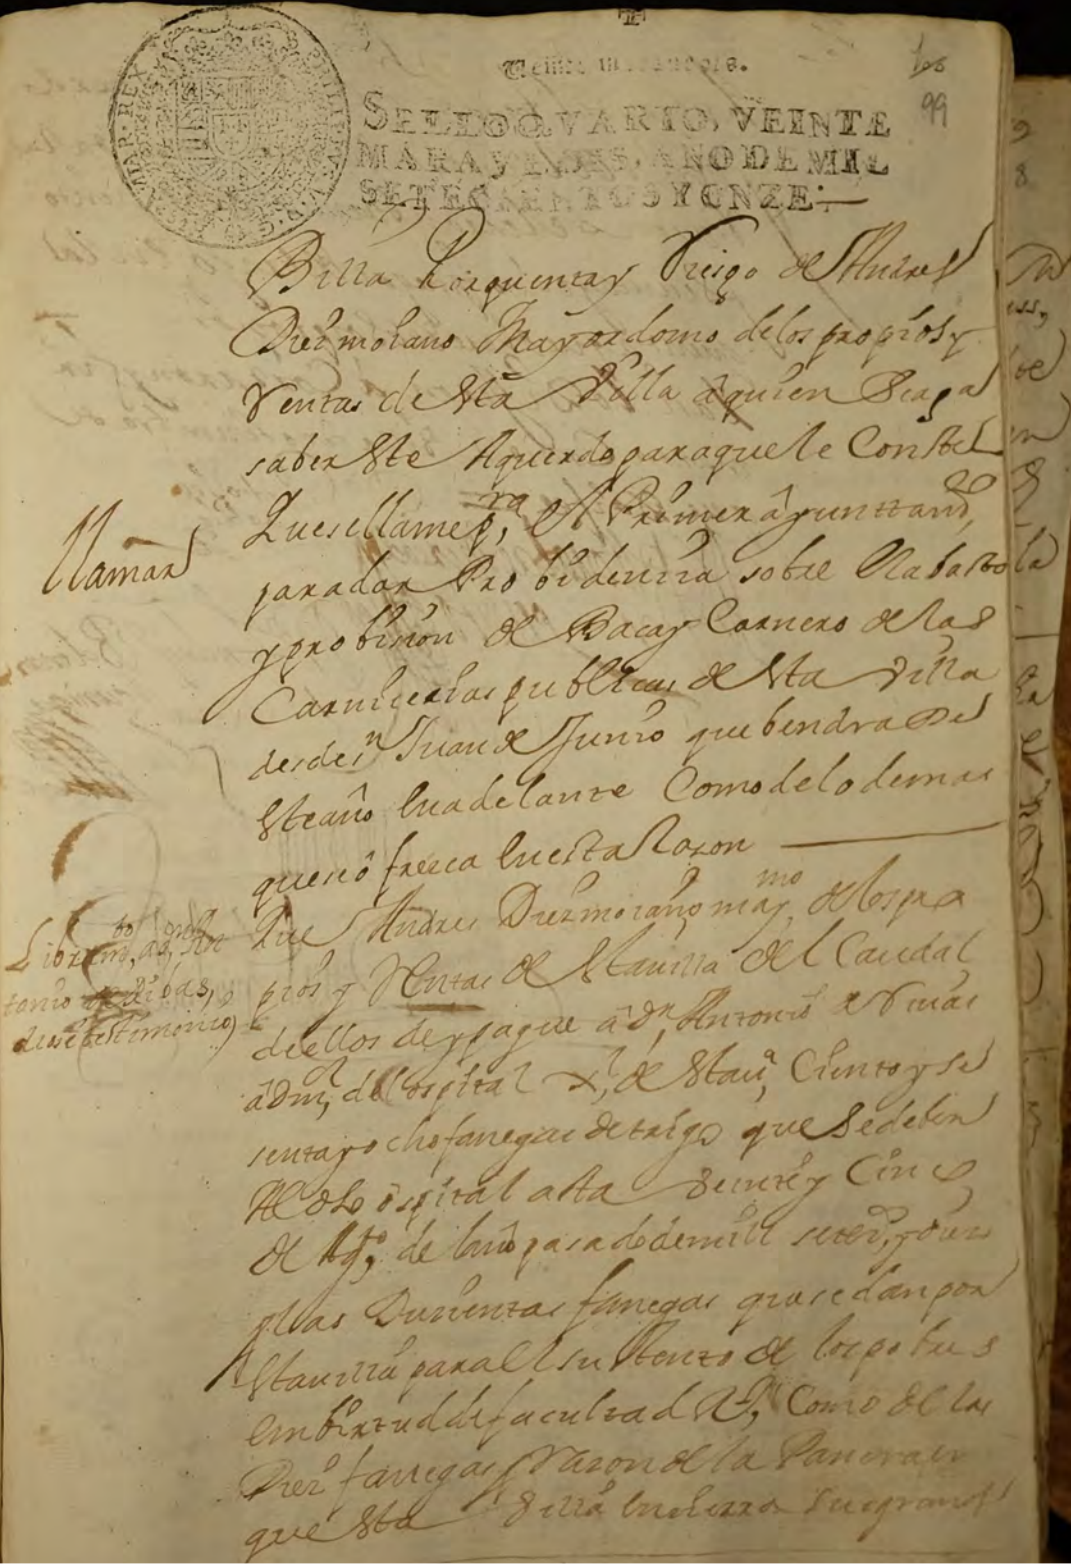 Veinte maravedis.
99
SELLO QVARTO, VEINTE
MARAVEDIS, AÑO DE MIL
SETECIENTOS Y ONZE.
Billa Por quenta y Riesgo de Andres
Diez morano Mayordomo de los propios y
Rentas de esta Villa a quien se aga
saber este Aquerdo para que le Conste
Que se llame pra el Primer ayunttamto
Llamar
para dar Probidencia sobre el abasto
y probision de Baca y Carnero de las
Carnicerias publicas de esta Villa
desde sn Juan de Junio que bendra de
este año en adelante Como de lo demas
que se ofrezca en esta Razon
Que Andres Diez morano maymo de los pro
pios y Rentas de esta villa del Caudal
de ellos de y pague a Dn Antonio de
admr del ospital de esta va Ciento y se
senta y ocho fanegas de trigo que se deben
Al dho ospital asta Veinte y Cinco
de Agto de el año pasado de mill setezs y diez
Libramto a dn An
tonio
diose testimonio
por las Duzientas fanegas que se dan por
esta villa para el sustento de los pobres
en birtud de facultad Rl, Como de las
Diez fanegas Razon de la Panera en
que esta Villa encierra sus granos